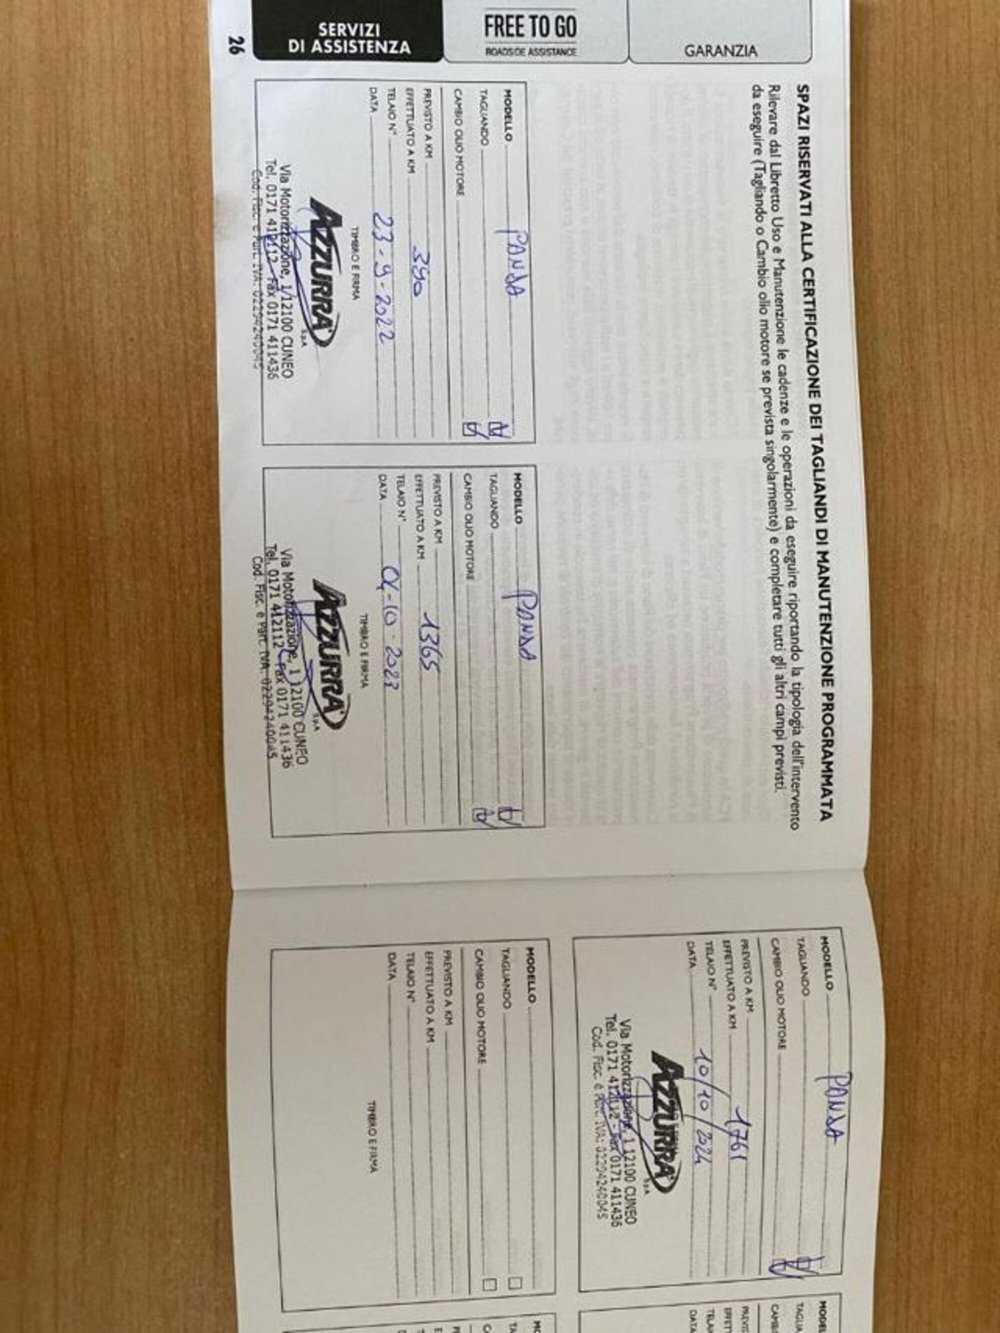 SERVIZI
DI ASSISTENZA
FREE TO GO
ROADSIDE ASSISTANCE
GARANZIA
26
SPAZI RISERVATI ALLA CERTIFICAZIONE DEI TAGLIANDI DI MANUTENZIONE PROGRAMMATA
Rilevare dal Libretto Uso e Manutenzione le cadenze e le operazioni da eseguire riportando la tipologia dell'intervento
da eseguire (Tagliando o Cambio olio motore se prevista singolarmente) e completare tutti gli altri campi previsti.
MODELLO PANDA
TAGLIANDO
CAMBIO OLIO MOTORE
PREVISTO A KM
EFFETTUATO A KM 390
TELAIO N°
DATA 23-9-2022
TIMBRO E FIRMA
AZZURRA S.p.A.
Via Motorizzazione, 1/12100 CUNEO
Tel. 0171 412112 - Fax 0171 411436
Cod. Fisc. e Part. IVA: 02294240045
MODELLO PANDA
TAGLIANDO
CAMBIO OLIO MOTORE
PREVISTO A KM
EFFETTUATO A KM 1365
TELAIO N°
DATA 04-10-2023
TIMBRO E FIRMA
AZZURRA S.p.A.
Via Motorizzazione, 1 12100 CUNEO
Tel. 0171 412112 - Fax 0171 411436
Cod. Fisc. e Part. IVA: 02294240045
MODELLO PANDA
TAGLIANDO
CAMBIO OLIO MOTORE
PREVISTO A KM
EFFETTUATO A KM 1761
TELAIO N°
DATA 10/10/2024
AZZURRA S.p.A.
Via Motorizzazione, 1 12100 CUNEO
Tel. 0171 412112 - Fax 0171 411436
Cod. Fisc. e Part. IVA: 02294240045
MODELLO
TAGLIANDO
CAMBIO OLIO MOTORE
PREVISTO A KM
EFFETTUATO A KM
TELAIO N°
DATA
TIMBRO E FIRMA